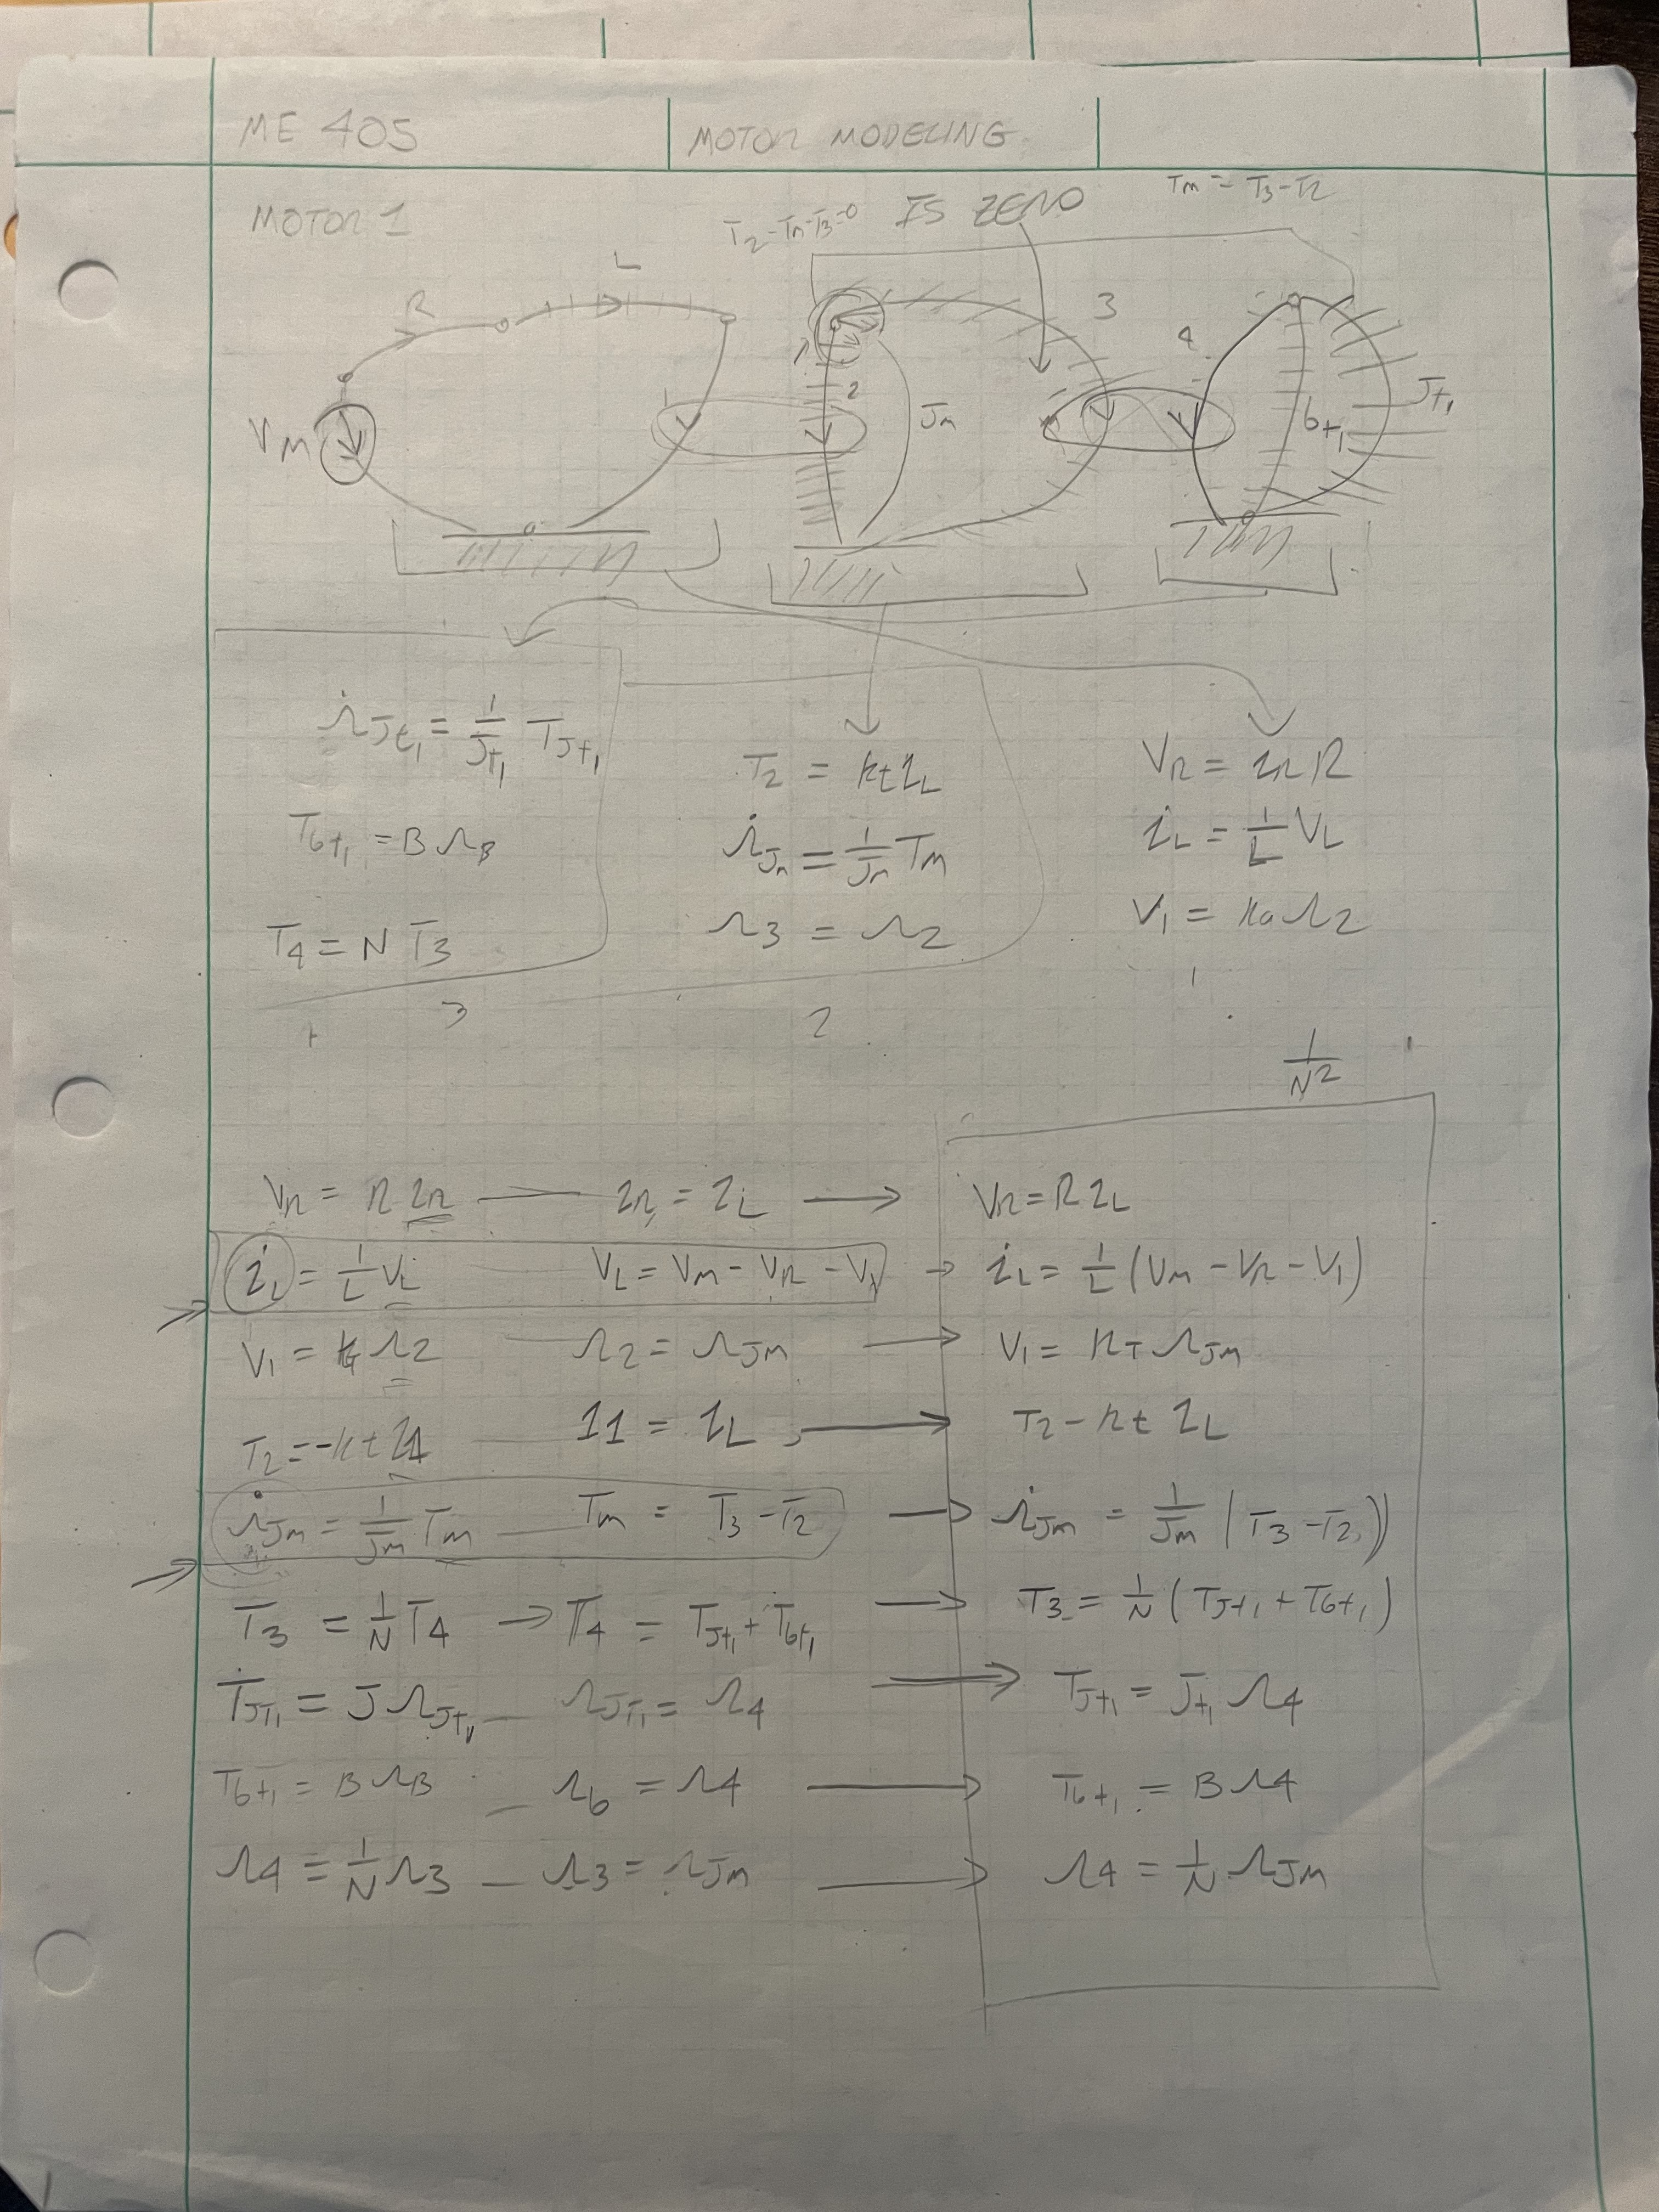 ME 405
MOTOR MODELING
MOTOR 1
T2-Tm-T3=0
IS ZERO
Tm = T3-T2
R
L
VM
1
2
Jm
3
4
bt1
Jt1
Ω̇Jt1 = 1/Jt1 TJt1
Tbt1 = B ΩB
T4 = N T3
3
T2 = kt iL
Ω̇Jm = 1/Jm Tm
Ω3 = Ω2
2
VR = iR R
i̇L = 1/L VL
V1 = ka Ω2
1
1/N²
VR = R iR — iR = iL → VR = R iL
i̇L = 1/L VL VL = VM - VR - V1 → i̇L = 1/L (VM - VR - V1)
V1 = kt Ω2 — Ω2 = ΩJM → V1 = KT ΩJM
T2 = -kt i1 — i1 = iL → T2 - kt iL
Ω̇Jm = 1/Jm Tm — Tm = T3 - T2 → Ω̇Jm = 1/Jm (T3 - T2))
T3 = 1/N T4 → T4 = TJt1 + Tbt1 → T3 = 1/N (TJt1 + Tbt1)
TJt1 = J ΩJt1 — ΩJt1 = Ω4 → TJt1 = Jt1 Ω4
Tbt1 = B ΩB — Ωb = Ω4 → Tbt1 = B Ω4
Ω4 = 1/N Ω3 — Ω3 = ΩJm → Ω4 = 1/N ΩJm